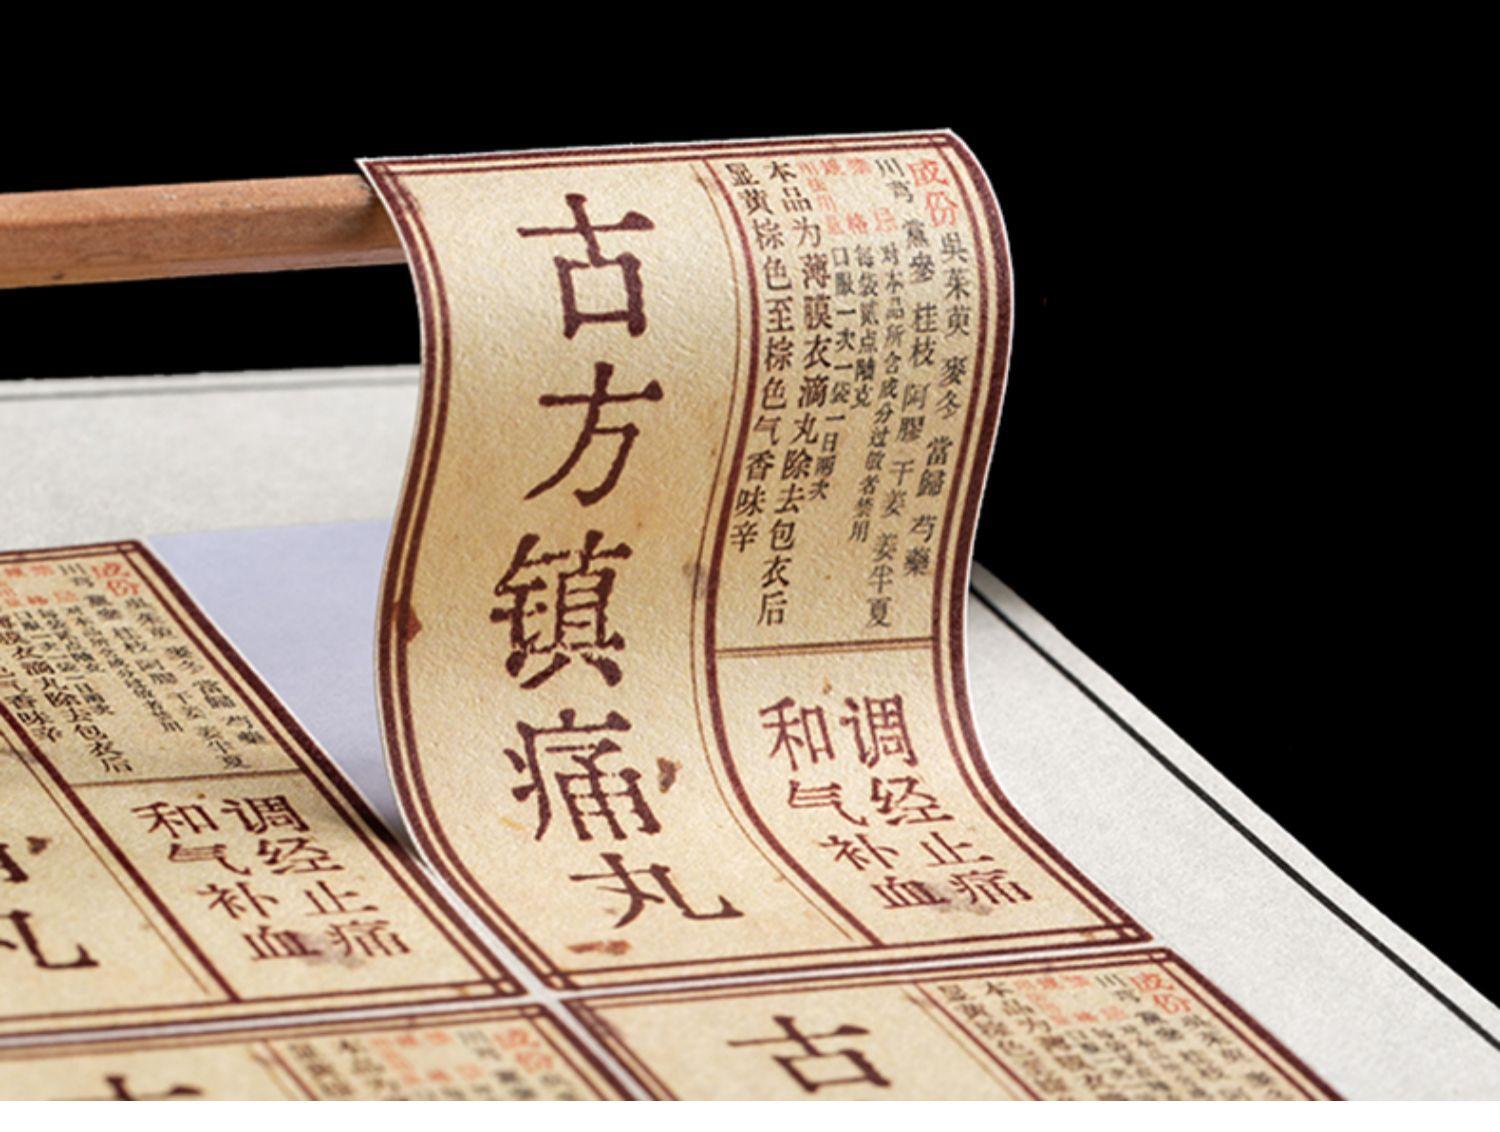 成份
吳茱萸 麥冬 當歸 芍藥
川芎 黨參 桂枝 阿膠 干姜 姜半夏
禁忌
对本品所含成分过敏者禁用
规格
每袋贰点陆克
用法用量
口服一次一袋一日兩次
本品为薄膜衣滴丸除去包衣后
显黄棕色至棕色气香味辛
调经止痛
和气补血
古方镇痛丸
成份
川芎 黨參 桂枝 阿膠 干姜 姜半夏
调经止痛
和气补血
丸
成份
本品为
古
成份